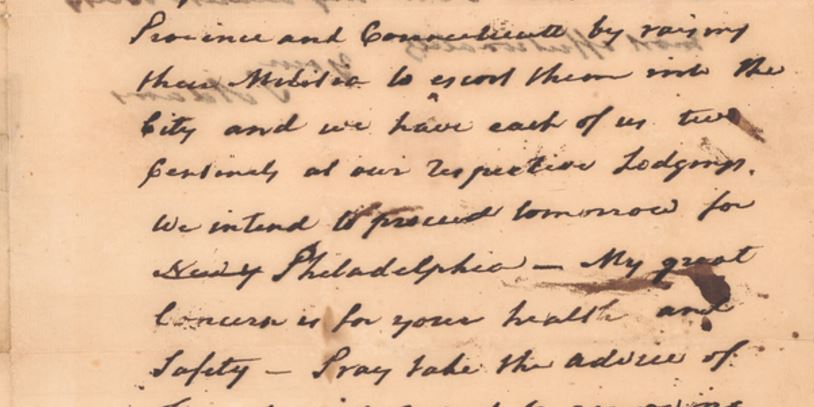 Province and Connecticutt by raising
their Militia to escort them into the
City and we have each of us two
Centinels at our respective Lodgings.
We intend to proceed tomorrow for
Philadelphia — My great
Concern is for your health and
Safety — Pray take the advice of